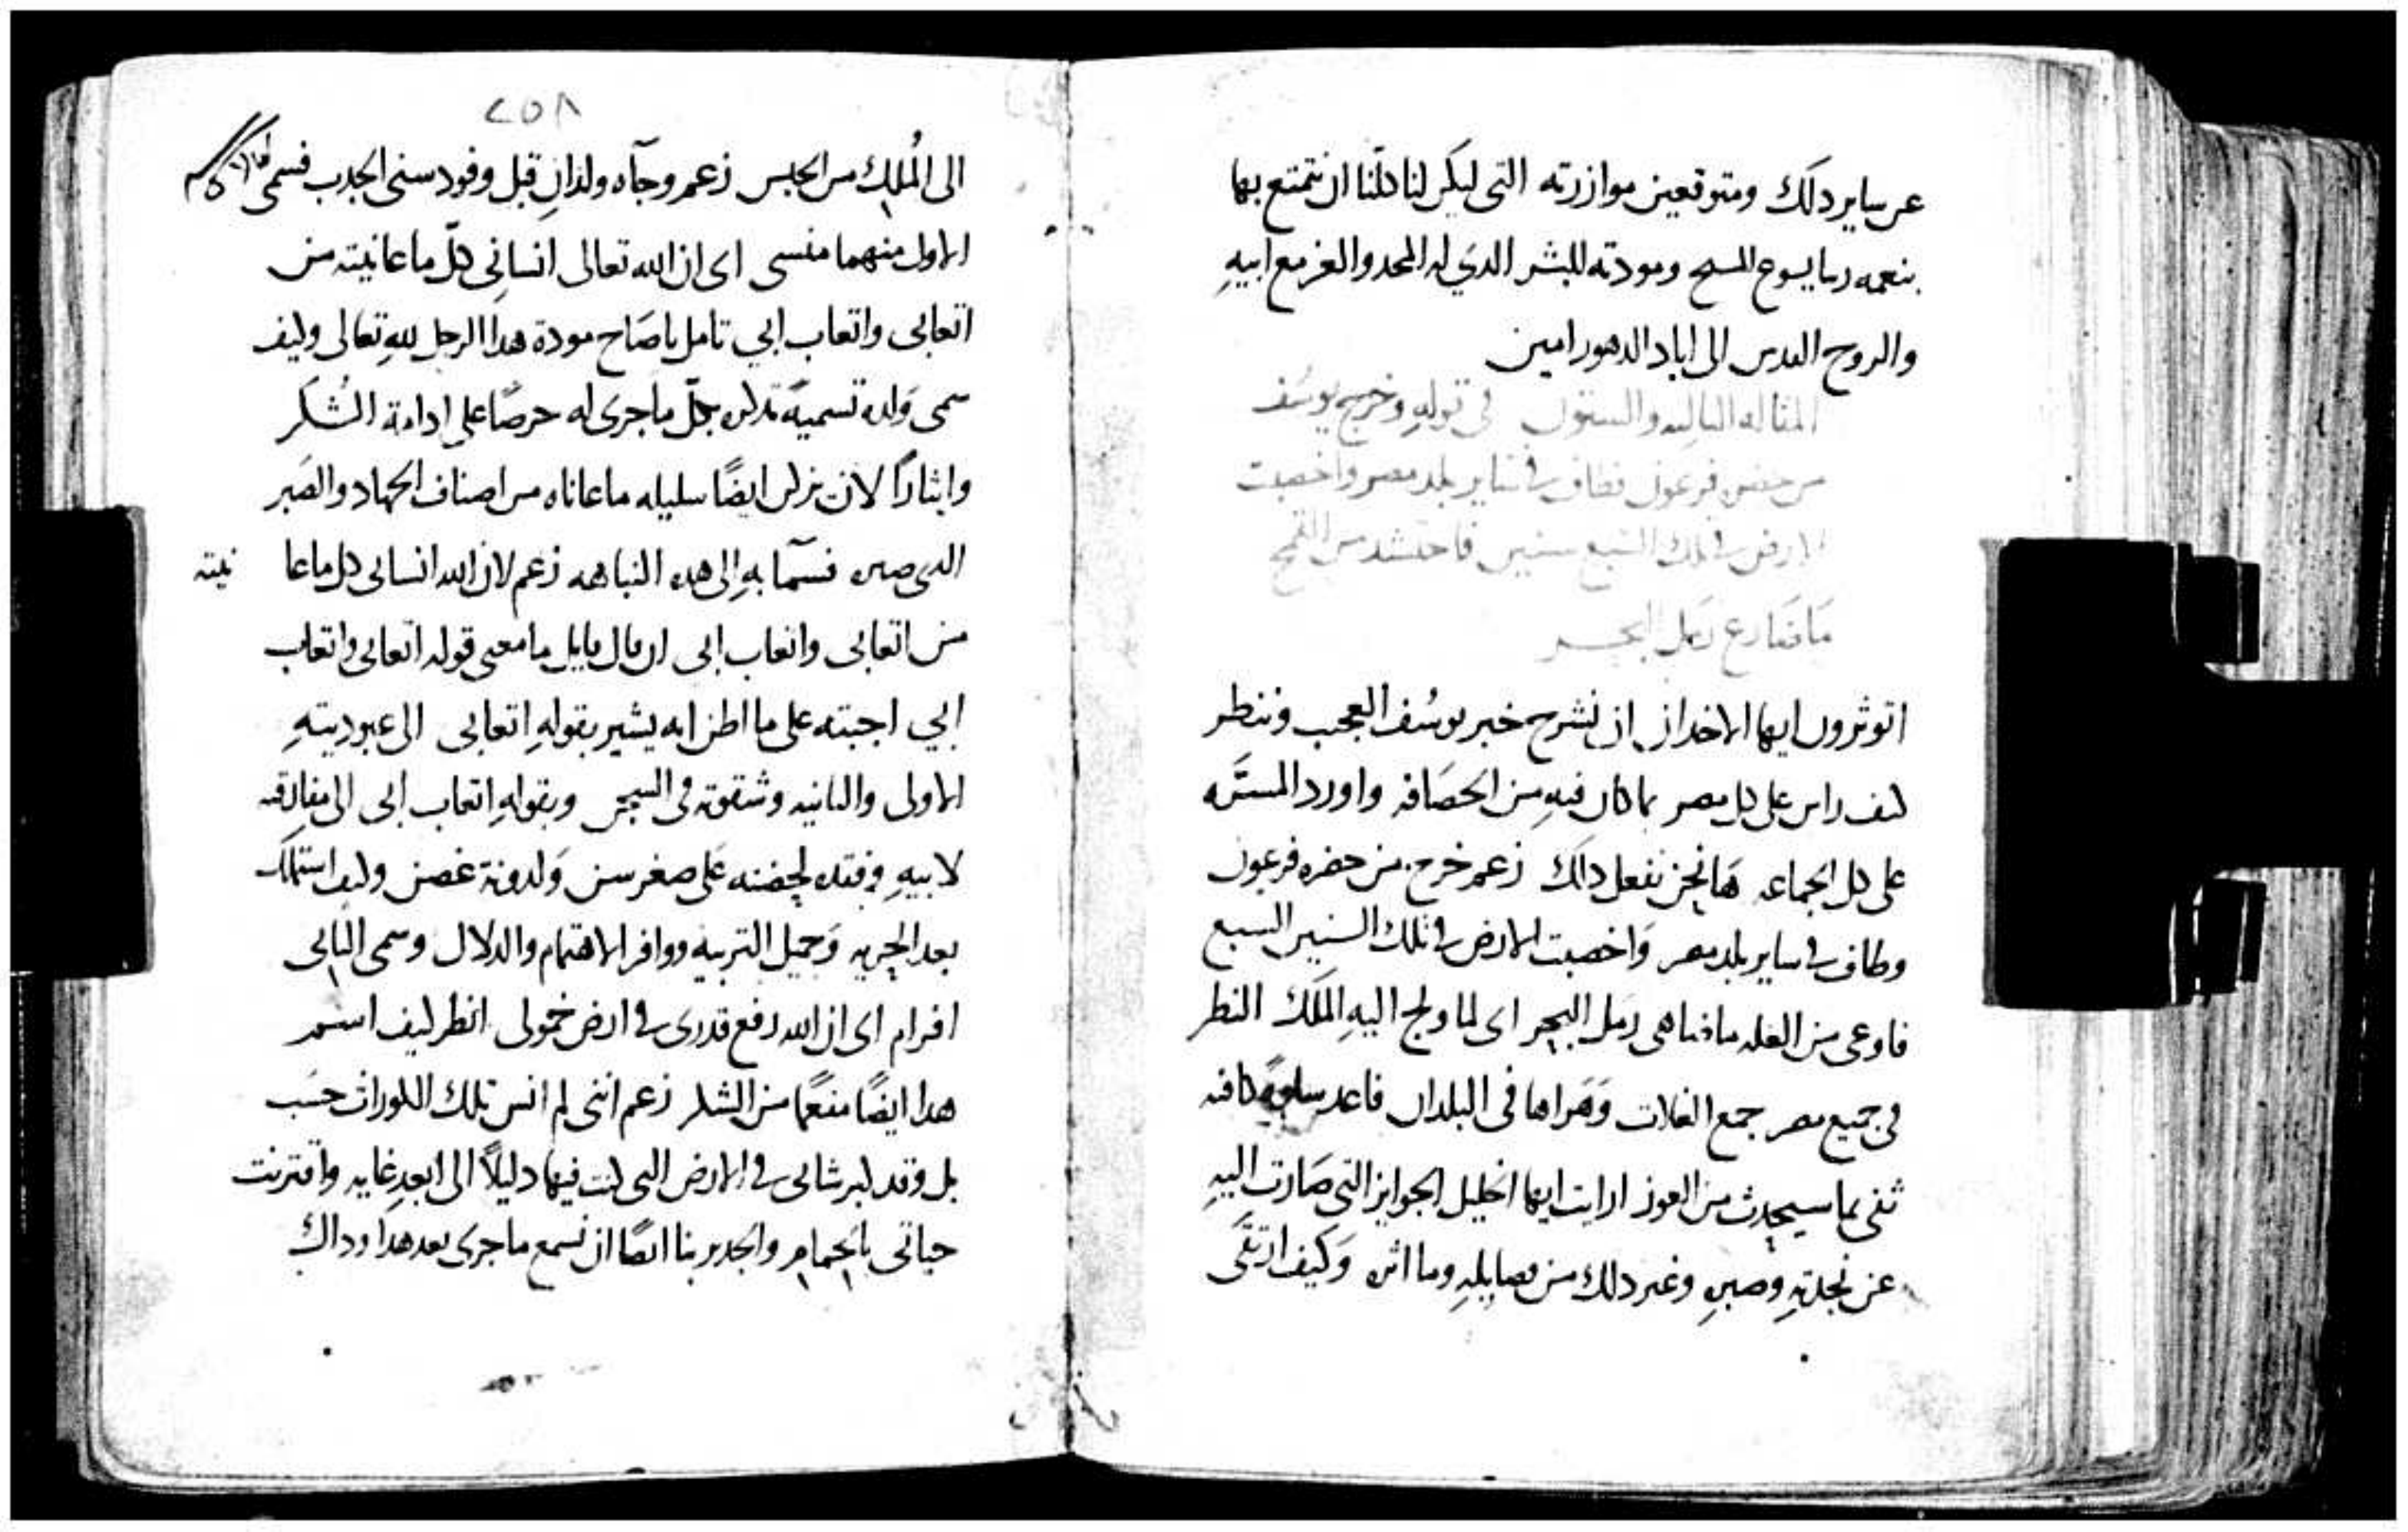 عن ساير دلك ومتوقعين موازرته التى ليكن لنا كلّنا ان نتمتع بها
بنعمه ربنا يسوع المسيح ومودته للبشر الدي له المجد والعز مع ابيهِ
والروح القدس الى اباد الدهور امين
المقاله الثالثه والستون في قولهِ وخرج يوسُف
من حضرة فرعون فطاف في ساير بلد مصر واخصبت
الارض في تلك السبع سنين فاحتشد من القمح
مَا ضَارع رَمل البحر
اتوثرون ايها الاخدان ان نشرح خبر يوسُف العجيب وننظر
كيف راس على كل مصر بما كان فيهِ من الحصَافه واورد المسرّه
على كل الجماعه هَا نحن نفعل دلك زعم خرج من حضره فرعون
وطاف في ساير بلد مصر وَاخصبت الارض في تلك السنين السبع
فاوعى من الغله ما ضاهى رَمل البحر اى لما ولج اليهِ الملَك النظر
فى جميع مصر جمع الغلات وَهَراها فى البلدان فاعد سلوهً كافيه
ثفى بما سيحدث من العوز ارايت ايها الخليل الجوايز التى صَارت اليهِ
عن نجدتهِ وصبرهِ وغير دلك من فضايلهِ وما اثره وَكيف ارتقَى
٢٥٨
الى المُلك من الحبس زعم وجآه ولدانِ قبل وفود سنى الجدب فسمى
الاول منهما منسى اى ان الله تعالى انسانِى كلّ ما عانيته من
اتعابى واتعاب ابي تامل ياصَاح مودة هدا الرجل للهِ تعالى وكيف
سمى وَلده تسميةً تدكره بجلّ ما جرى له حرصًا على ادامة الشُكر
وايثارًا لان يدكر ايضًا سليله ما عاناه من اصناف الجهاد والصَبر
الدى صيره فسَمآ بهِ الى هده النباهه زعم لان الله انسانى كل ما عا نيته
من اتعابى واتعاب ابى ان قال قايل ما معنى قوله اتعابى واتعاب
ابي اجبته على ما اظن انه يشير بقولهِ اتعابى الى عبوديتهِ
الاولى والثانيه وشقوته فى السجن وبقولهِ اتعاب ابى الى مفارقته
لابيهِ وفقده لحضنه عَلى صغر سن وَلدونة غصن وكيف استملك
بعد الحريه وَجميل التربيه ووافر الاهتمام والدلال وسمى الثانى
افرام اى ان الله رفع قدرى في ارض خمولى انظر كيف اسم
هدا ايضًا منعمًا من الشكر زعم اننى لم انس تلك الكوراث حسَب
بل وقد كبر شانى في الارض التى كنت فيها دليلاً الى ابعدِ غايه واقترنت
حياتى بالحمام والجدير بنا ايضًا ان نسمع ما جرى بعد هدا وداك